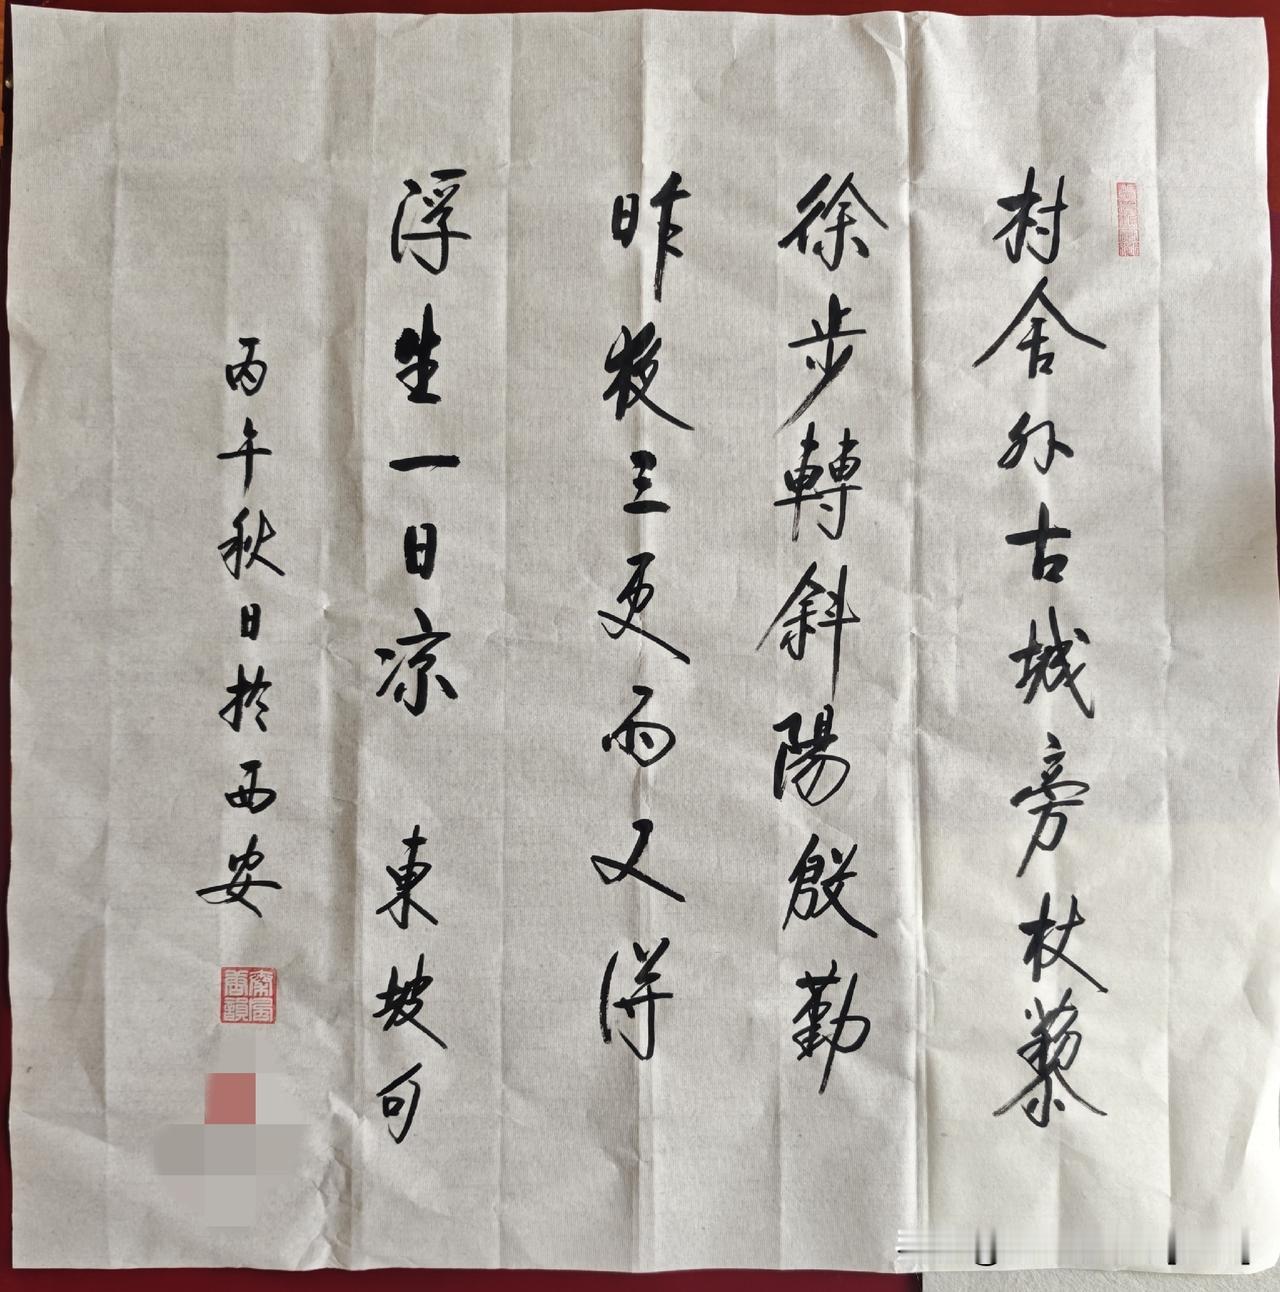 村舍外古城旁杖藜
徐步轉斜陽殷勤
昨夜三更雨又得
浮生一日凉 東坡句
丙午秋日於西安